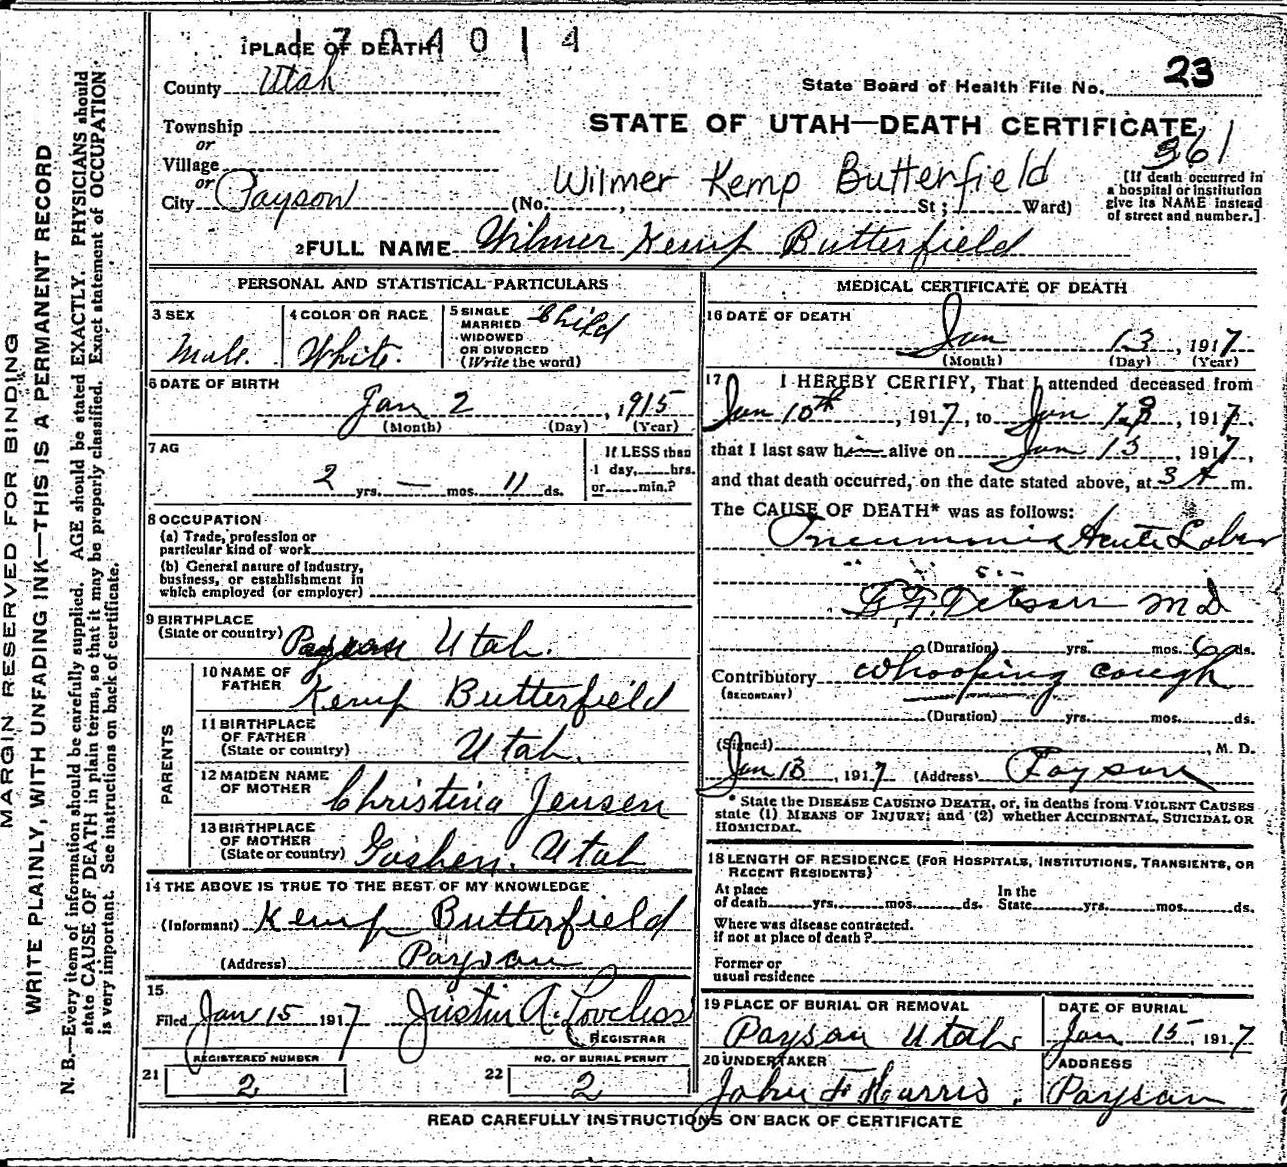 1 PLACE OF DEATH 1704014
County Utah
State Board of Health File No. 23
Township
or
STATE OF UTAH—DEATH CERTIFICATE
361
Village
or
City Payson
Wilmer Kemp Butterfield
(No. , St; Ward)
[If death occurred in
a hospital or institution
give its NAME instead
of street and number.]
2 FULL NAME Wilmer Kemp Butterfield
PERSONAL AND STATISTICAL PARTICULARS
3 SEX
Male.
4 COLOR OR RACE
White.
5 SINGLE
MARRIED
WIDOWED
OR DIVORCED
(Write the word)
Child
6 DATE OF BIRTH
Jan 2, 1915
(Month) (Day) (Year)
7 AG
2 yrs. — mos. 11 ds.
If LESS than
1 day, hrs.
or min.?
8 OCCUPATION
(a) Trade, profession or
particular kind of work
(b) General nature of industry,
business, or establishment in
which employed (or employer)
9 BIRTHPLACE
(State or country) Payson Utah.
PARENTS
10 NAME OF
FATHER
Kemp Butterfield
11 BIRTHPLACE
OF FATHER
(State or country) Utah.
12 MAIDEN NAME
OF MOTHER Christina Jensen
13 BIRTHPLACE
OF MOTHER
(State or country) Goshen, Utah
14 THE ABOVE IS TRUE TO THE BEST OF MY KNOWLEDGE
(Informant) Kemp Butterfield
(Address) Payson
15
Filed Jan 15 1917 Justin A. Loveless
REGISTRAR
REGISTERED NUMBER
21 2
NO. OF BURIAL PERMIT
22 2
MEDICAL CERTIFICATE OF DEATH
16 DATE OF DEATH
Jan 13, 1917
(Month) (Day) (Year)
17 I HEREBY CERTIFY, That I attended deceased from
Jan 10th, 1917, to Jan 13, 1917.
that I last saw him alive on Jan 13, 1917,
and that death occurred, on the date stated above, at 3 A m.
The CAUSE OF DEATH* was as follows:
Pneumonia Acute Lobar
M D
(Duration) yrs. mos. 6 ds.
Contributory Whooping cough
(SECONDARY)
(Duration) yrs. mos. ds.
(Signed) , M. D.
Jan 13, 1917 (Address) Payson
* State the DISEASE CAUSING DEATH, or, in deaths from VIOLENT CAUSES
state (1) MEANS OF INJURY; and (2) whether ACCIDENTAL, SUICIDAL OR
HOMICIDAL.
18 LENGTH OF RESIDENCE (FOR HOSPITALS, INSTITUTIONS, TRANSIENTS, OR
RECENT RESIDENTS)
At place
of death yrs. mos. ds.
In the
State yrs. mos. ds.
Where was disease contracted.
if not at place of death?
Former or
usual residence
19 PLACE OF BURIAL OR REMOVAL
Payson Utah.
DATE OF BURIAL
Jan 15, 1917
20 UNDERTAKER
John F Harris.
ADDRESS
Payson
READ CAREFULLY INSTRUCTIONS ON BACK OF CERTIFICATE
MARGIN RESERVED FOR BINDING
WRITE PLAINLY, WITH UNFADING INK—THIS IS A PERMANENT RECORD
N. B.—Every item of information should be carefully supplied. AGE should be stated EXACTLY. PHYSICIANS should
state CAUSE OF DEATH in plain terms, so that it may be properly classified. Exact statement of OCCUPATION
is very important. See instructions on back of certificate.